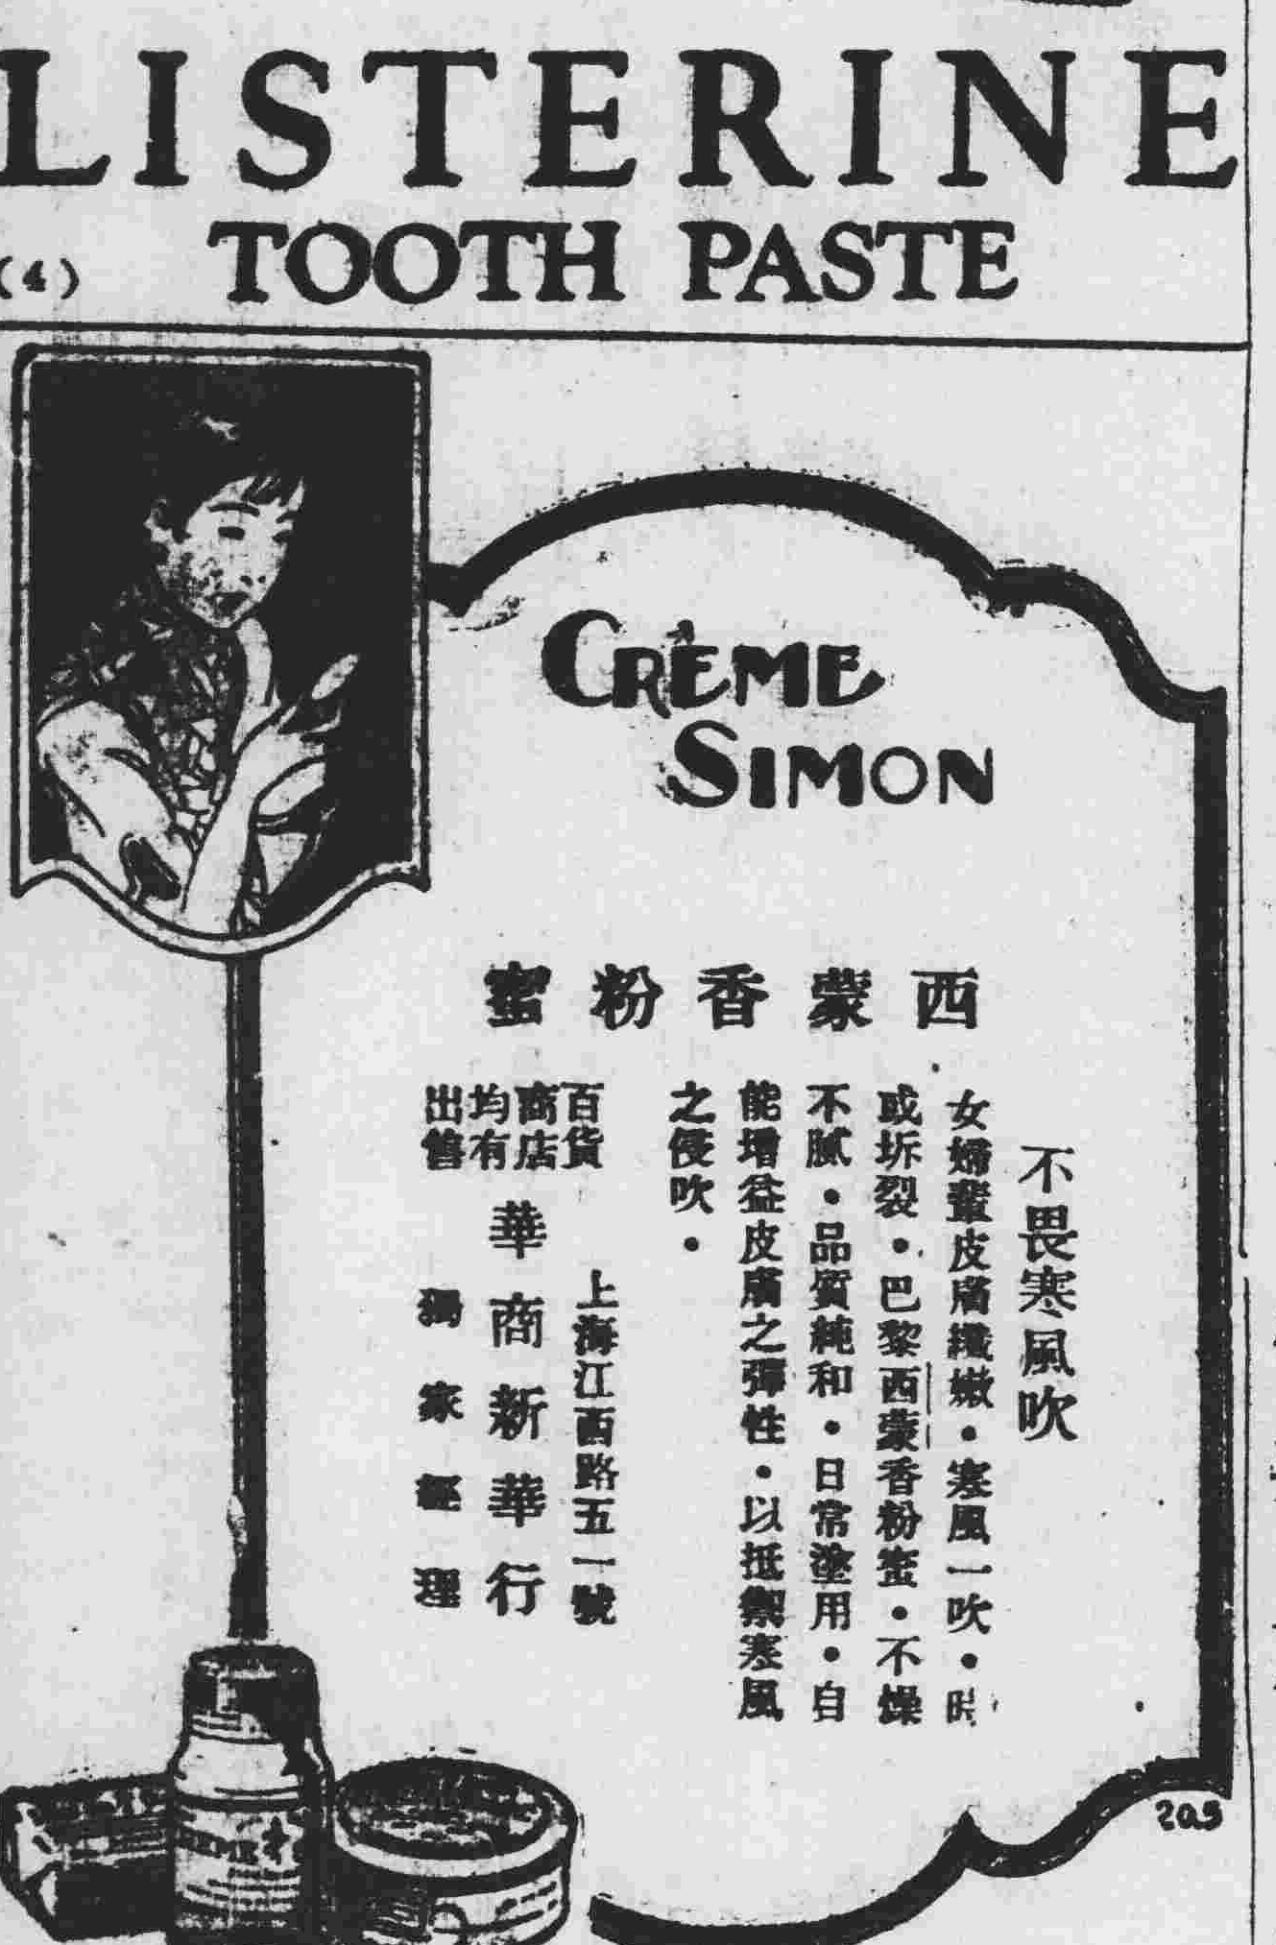 LISTERINE
TOOTH PASTE
(4)
CRÈME
SIMON
西蒙香粉蜜
不畏寒風吹
女婦輩皮膚纖嫩・寒風一吹・時
或坼裂・巴黎西蒙香粉蜜・不燥
不膩・品質純和・日常塗用・自
能增益皮膚之彈性・以抵禦寒風
之侵吹・
百貨
商店
均有
出售
上海江西路五一號
華商新華行
獨家經理
203